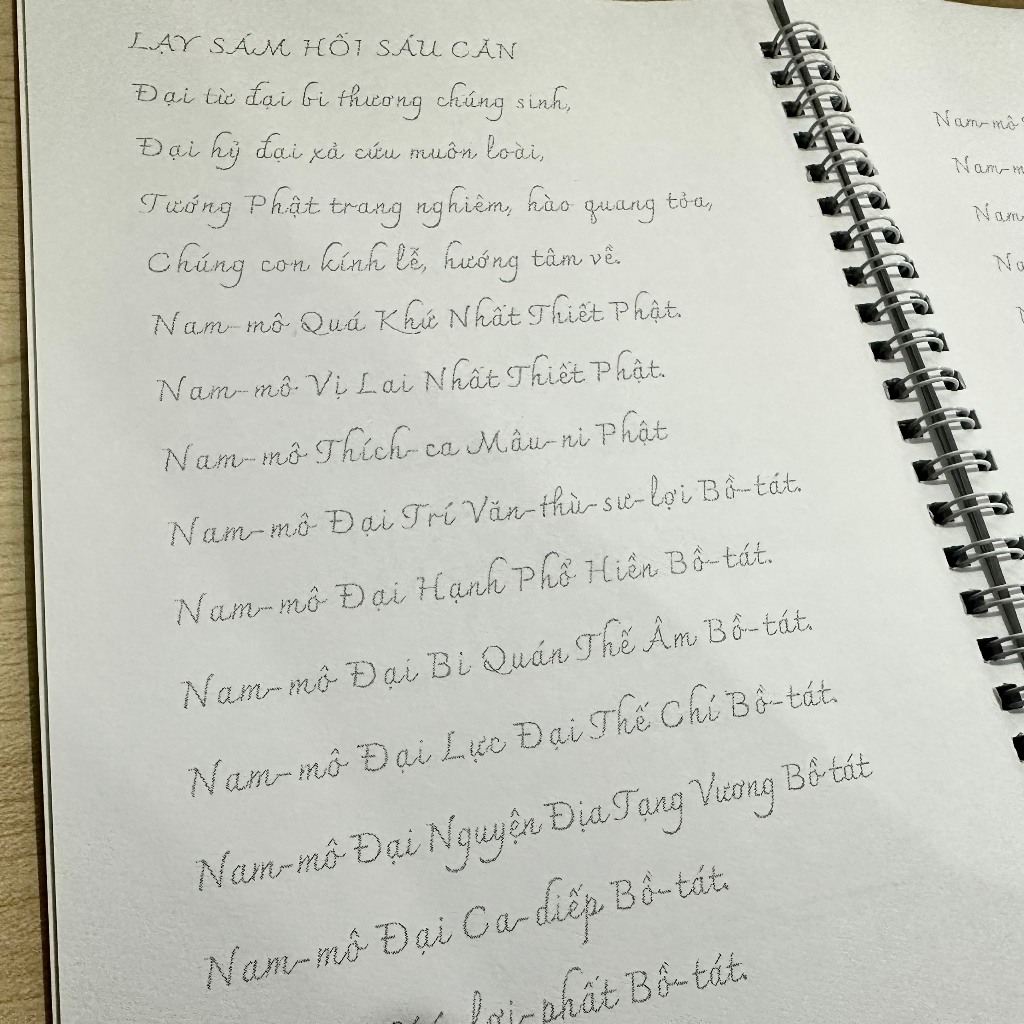 LẠY SÁM HỐI SÁU CĂN
Đại từ đại bi thương chúng sinh,
Đại hỷ đại xả cứu muôn loài,
Tướng Phật trang nghiêm, hào quang tỏa,
Chúng con kính lễ, hướng tâm về.
Nam-mô Quá Khứ Nhất Thiết Phật.
Nam-mô Vị Lai Nhất Thiết Phật.
Nam-mô Thích-ca Mâu-ni Phật
Nam-mô Đại Trí Văn-thù-sư-lợi Bồ-tát.
Nam-mô Đại Hạnh Phổ Hiền Bồ-tát.
Nam-mô Đại Bi Quán Thế Âm Bồ-tát.
Nam-mô Đại Lực Đại Thế Chí Bồ-tát.
Nam-mô Đại Nguyện Địa Tạng Vương Bồ tát
Nam-mô Đại Ca-diếp Bồ-tát.
lợi-phất Bồ-tát.
Nam-mô
Nam-m
Nam
Na